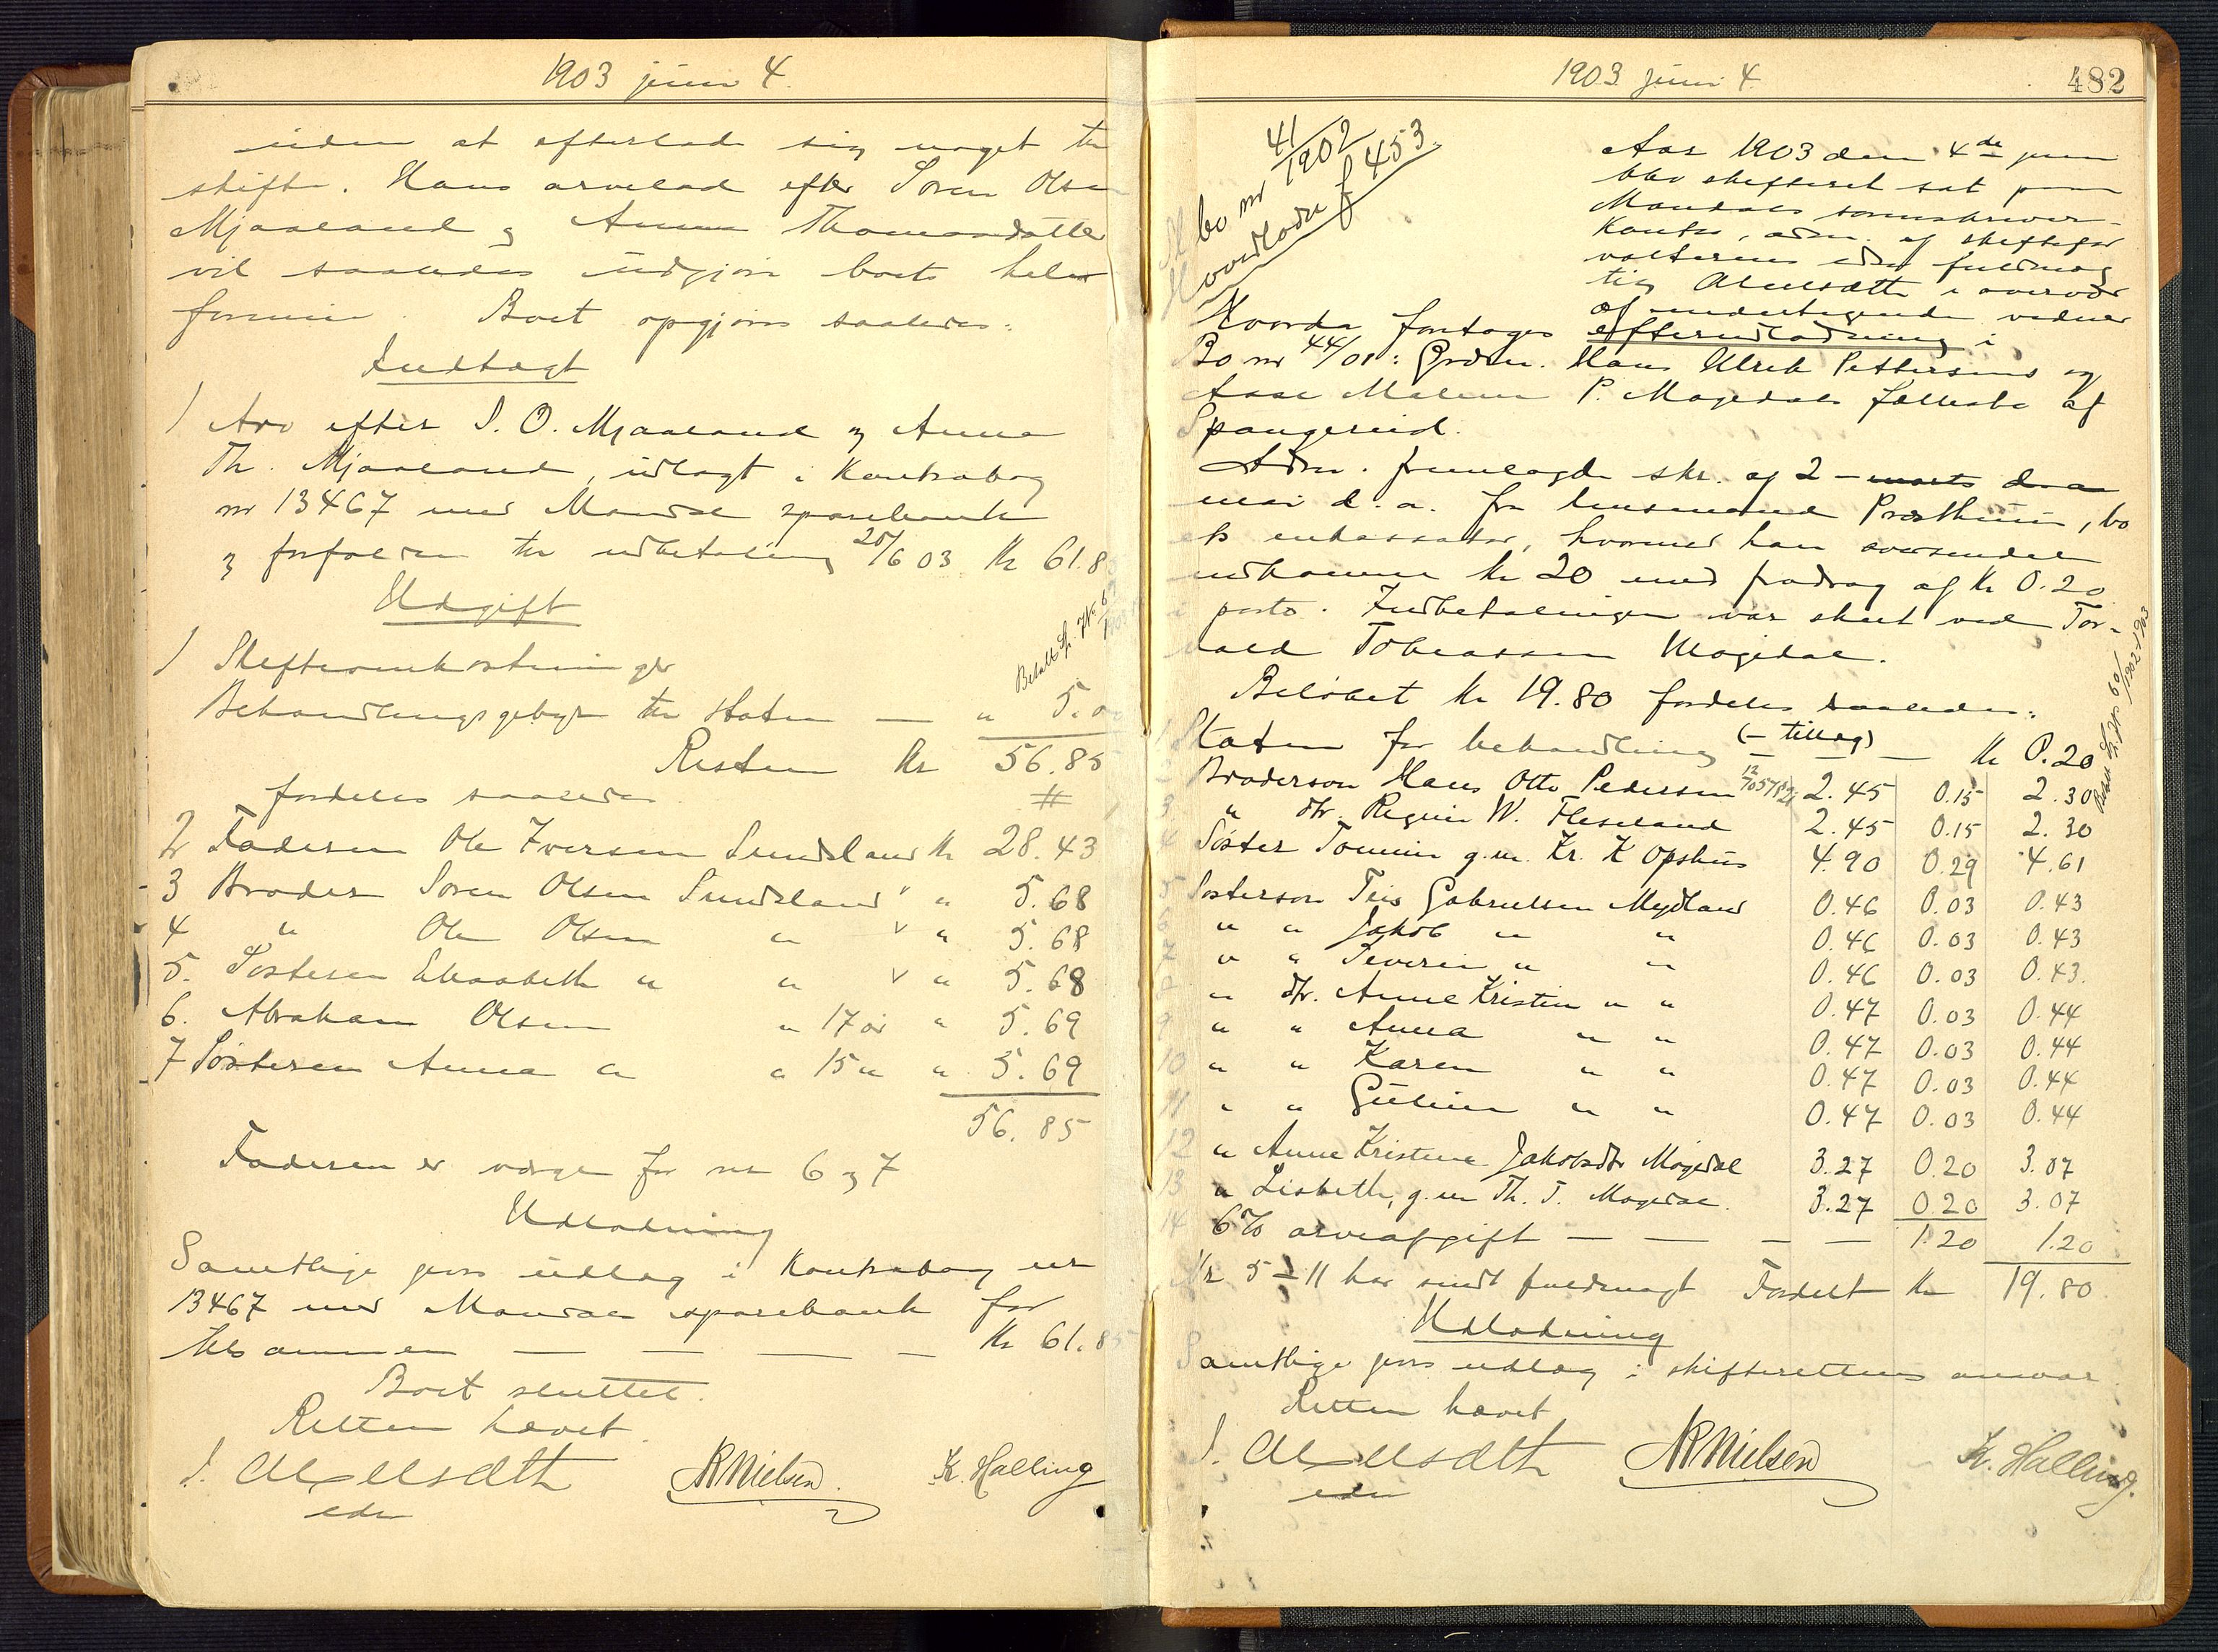 1903 juni 4.
uden at efterlade sig noget til
skifte. Hans arvelod efter Søren Olsen
Mjaaland og Anna Thomasdatter
vil saaledes udgjøre boets hele
formue. Boet opgjøres saaledes:
Indtægt
1 Arv efter S. O. Mjaaland og Anna
Th. Mjaaland, udlagt i Kontrabog
nr 13467 med Mandal sparebank
og forfalden til udbetaling 20/6 03 Kr 61.8
Udgift
1 Skifteomkostninger
Behandlingsgebyr til Staten — " 5.00
Resten Kr 56.85
fordeles saaledes
2 Faderen Ole Iversen Sundsland Kr 28.43
3 Broder Søren Olsen Sundsland " " 5.68
4 " Ole Olsen " v " 5.68
5. Søsteren Elisabeth " " v " 5.68
6. Abraham Olsen " 17 år " 5.69
7 Søsteren Anna " " 15 " " 5.69
56.85
Faderen er værge for nr 6 og 7
Udlodning
Samtlige gives udlæg i Kontrabog nr
13467 med Mandal sparebank for
tilsammen — — — — Kr 61.85
Boet sluttet.
Retten hævet.
J. Axelsæth NRNielsen. K. Halling
edv
1903 juni 4. 482
bo nr 41/1902
f 453.
Aar 1903 den 4de juni
blev skifteret sat paa
Mandals sorenskriver-
kontor, adm. af skiftefor
valterens edsv fuldmæg
tig Axelsæth i overvær
af undertegnede vidner
Hvorda foretoges efterudlodning i
Bo nr 44/01: Grdm. Hans Ulrik Pettersens og
Aase Malene P. Magedals fællesbo af
Spangereid.
Adm. fremlagde skr. af 2 – marts d. a
mai d. a. fra lensmand Præsthuus, bo
ets inkassator, hvormed han oversender
indkomne Kr 20 med fradrag af Kr 0.20
i porto. Indbetalingen var skeet ved Tor-
vald Tobiassen Magedal.
Beløbet Kr 19.80 fordeles saaledes:
1 Staten for behandling (– tillæg) — Kr 0.20
2 Brodersøn Hans Otto Pedersen 2.45 0.15 2.30
3 " dtr. Regine W. Fleseland 2.45 0.15 2.30
4 Søster Tomine g.m. Kr. K Opshus 4.90 0.29 4.61
5 Søstersøn Teis Gabrielsen Mydland 0.46 0.03 0.43
6 " " Jakob " " 0.46 0.03 0.43
7 " " Severin " " 0.46 0.03 0.43.
8 " dtr. Anne Kristine " " 0.47 0.03 0.44
9 " " Anna " " 0.47 0.03 0.44
10 " " Karen " " 0.47 0.03 0.44
11 " " Guline " " 0.47 0.03 0.44
12 " Anne Kristine Jakobsdtr Magedal 3.27 0.20 3.07
13 " Lisbeth, g.m Th. T. Magedal. 3.27 0.20 3.07
14 6% arveafgift — — — — 1.20 1.20
Nr 5–11 har sendt fuldmagt Fordelt Kr 19.80
Udlodning
Samtlige gives udlæg i skifterettens ansvar
Retten hævet
J. Axelsæth NRNielsen K. Halling.
edv